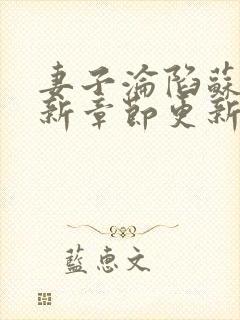 妻子淪陷蘇
新章節更新
藍惠文